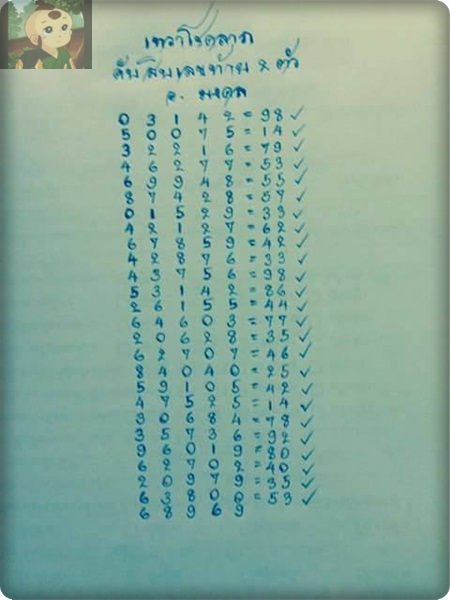 เทวาโชคลาภ
ดับสิบเลขท้าย 2 ตัว
อ. มงคล
0 3 1 4 2 = 98 ✓
5 0 0 7 5 = 14 ✓
3 2 2 1 6 = 79 ✓
4 6 2 7 7 = 53 ✓
6 9 9 4 8 = 55 ✓
8 7 4 2 8 = 57 ✓
0 1 5 2 9 = 33 ✓
4 2 1 2 7 = 62 ✓
6 7 8 5 9 = 42 ✓
4 2 8 7 6 = 33 ✓
4 3 7 5 6 = 98 ✓
5 3 1 4 2 = 86 ✓
2 6 1 5 5 = 44 ✓
6 4 6 0 3 = 77 ✓
2 0 6 2 8 = 35 ✓
6 2 7 0 7 = 46 ✓
8 4 0 4 0 = 25 ✓
5 9 1 0 5 = 42 ✓
4 7 5 2 5 = 14 ✓
3 0 6 8 4 = 78 ✓
3 5 7 3 6 = 92 ✓
9 6 0 1 9 = 80 ✓
6 2 7 0 2 = 40 ✓
2 0 9 7 9 = 35 ✓
6 3 8 0 0 = 53 ✓
6 8 9 6 9